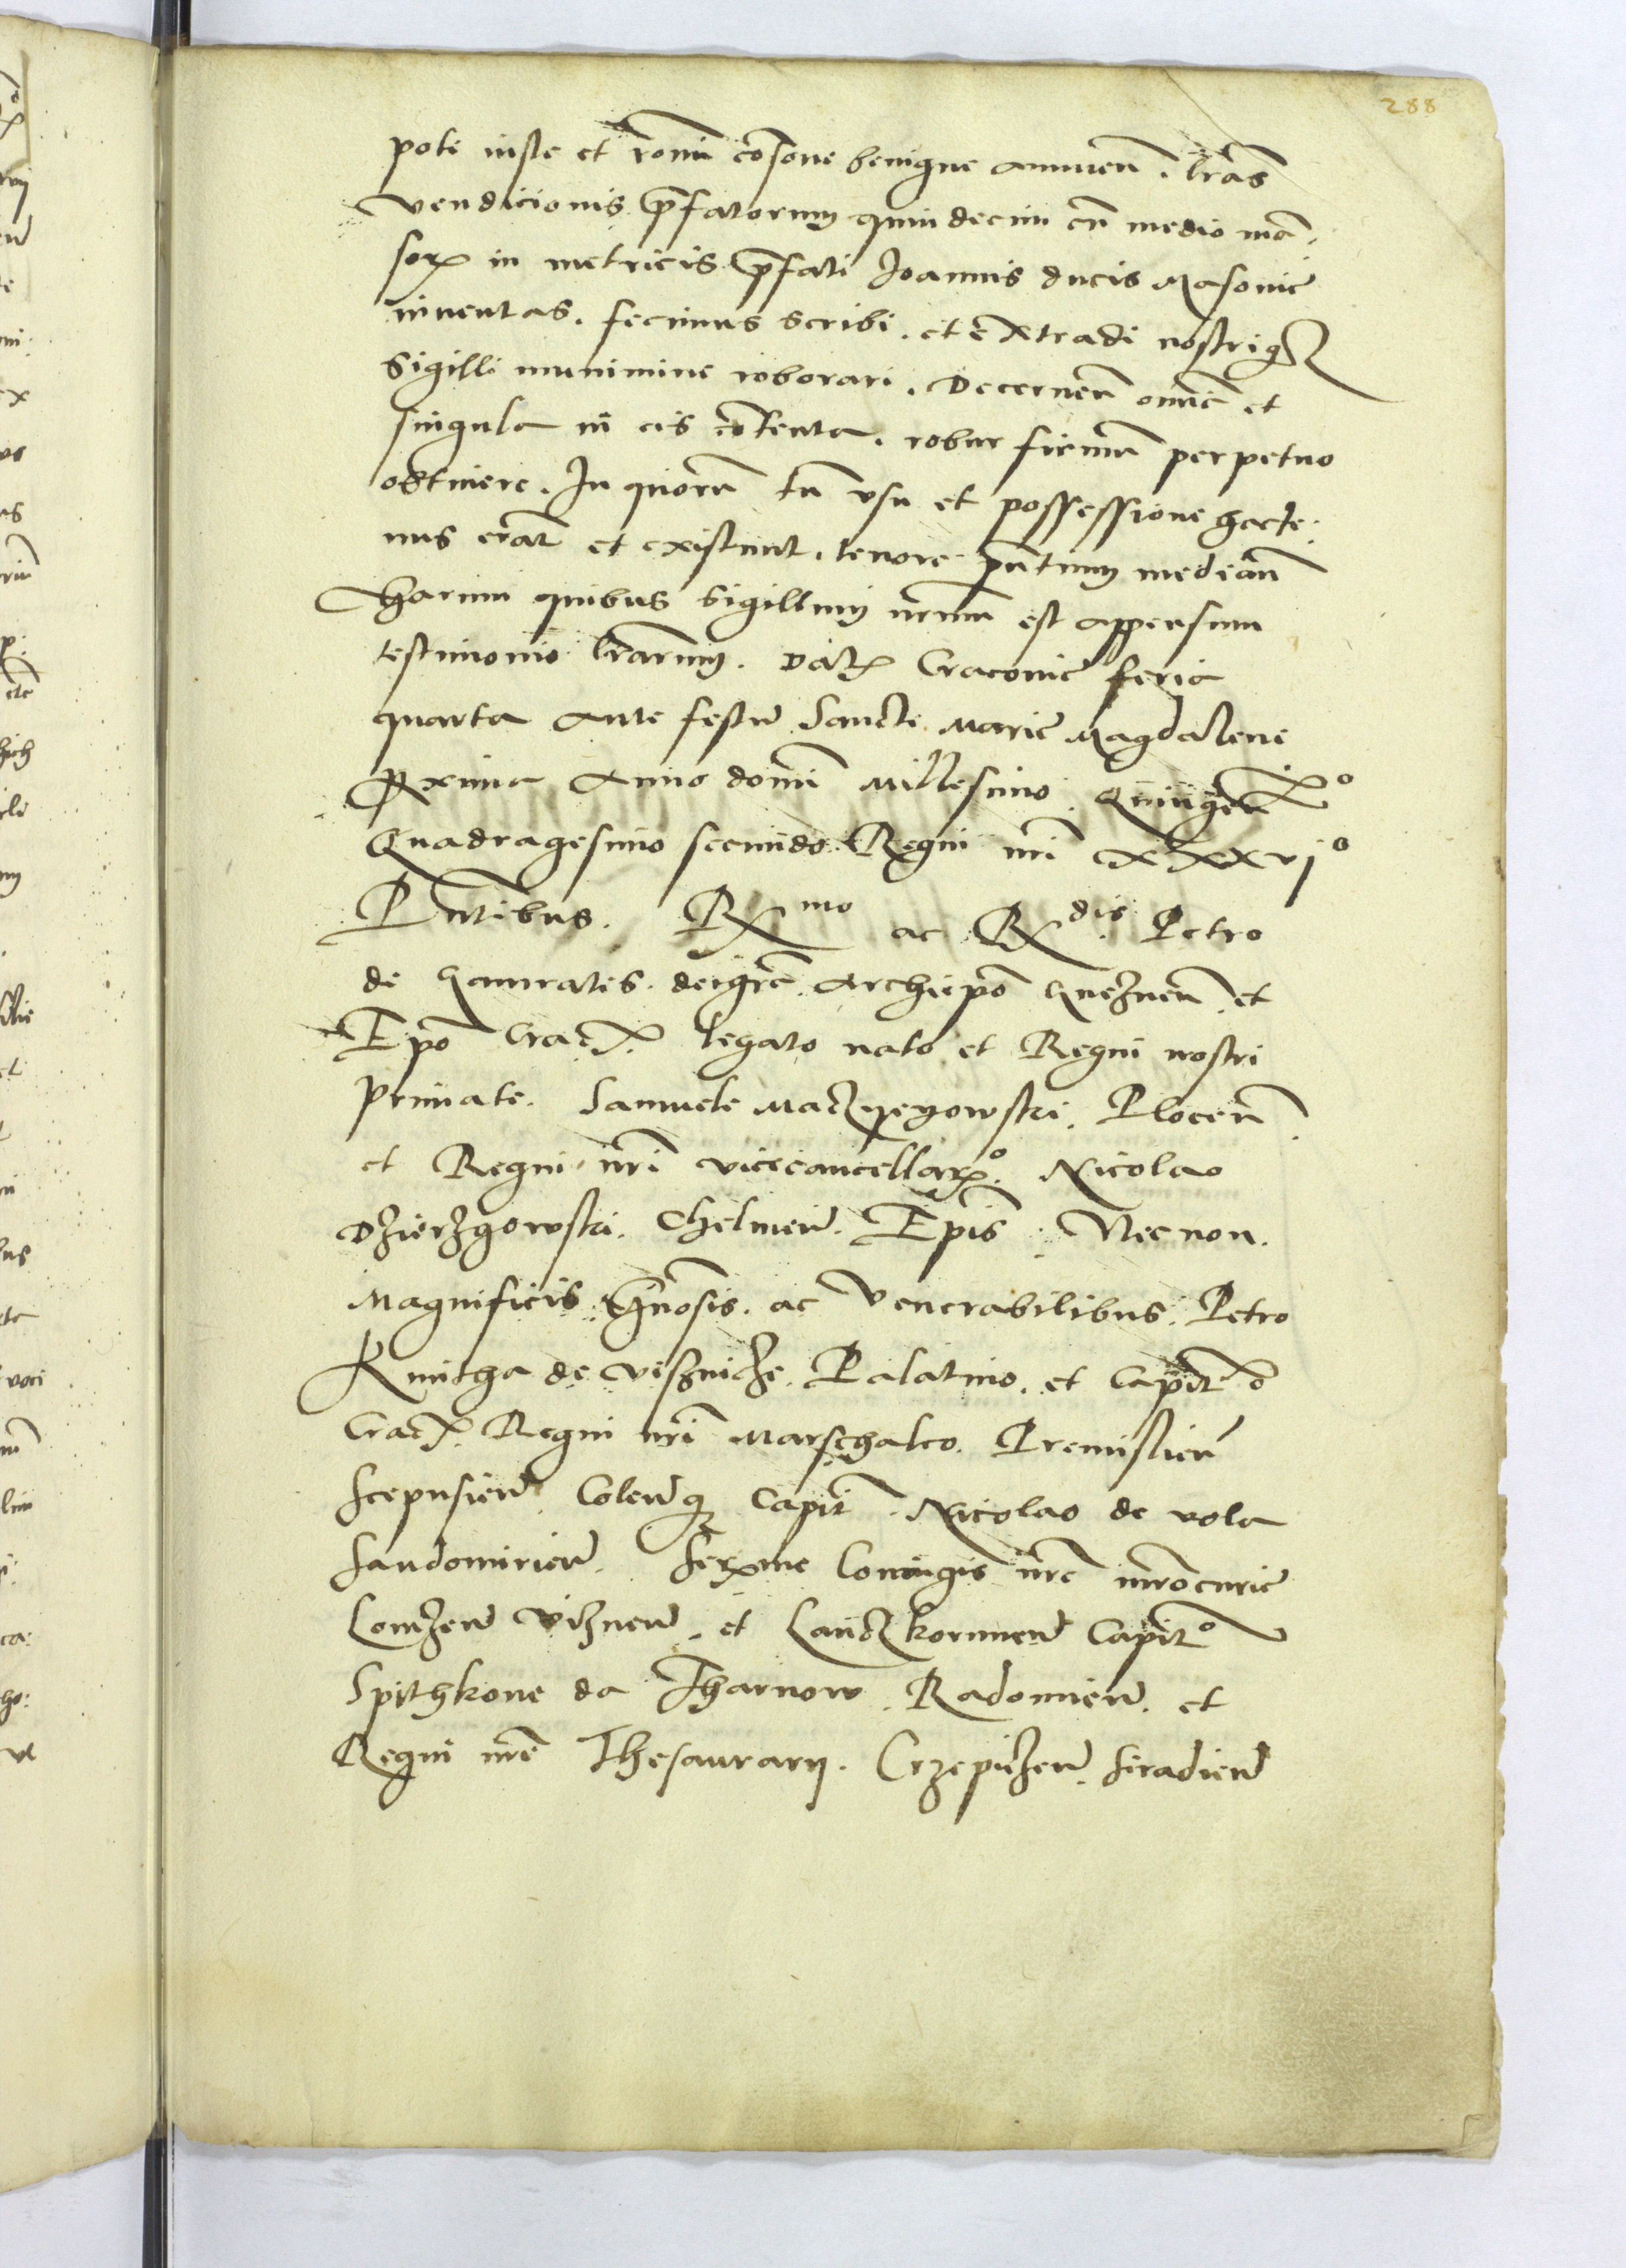 288
pote iuste et roni consone benigne annuen. lras
vendicionis pfatorum quindecim cu medio ma:
sorx in metricis pfati Joannis ducis Masouie
inuentas. fecimus scribi. et extradi nostriqz
Sigilli munimine roborari. Decernen omnia et
singula in eis contenta. robur firmu perpetuo
obtinere. In quoru tn vsu et possessione hacte:
nus erat et existunt. tenore pntium median
Harum quibus Sigillum nrum est appensum
testimonio lrarum. Datx Cracouie feria
quarta ante festu Sancte Marie Magdalene
proxima Anno domi Millesimo Quingenx°
Quadragesimo secundo. Regni nri XXXVI°
Pntibus. Rx mo ac Rx dis. Petro
de Gamratis. dei gra. Archiepo Gneznen et
Epo Cracx. legato nato et Regni nostri
primate. Samuele Maczyeyowski. Plocen
et Regni nri vicecancellarx°. Nicolao
Dzierzgowski. Chelmen. Epis. Necnon.
Magnificis. Gnosis. ac Venerabilibus. Petro
Kmitha de Viszniche. Palatino. et Capit°
Cracx. Regni nri Marschalco. Premislien
Scepusien Colenqz Capit. Nicolao de vola
Sandomirien. Serxme Coniugis nre mrocurie
Lomzen Viznen. et Lanczkorunen Capit°
Spithkone da Tharnow. Radomien. et
Regni nre Thesaurarij. Crzepizen. Siradien